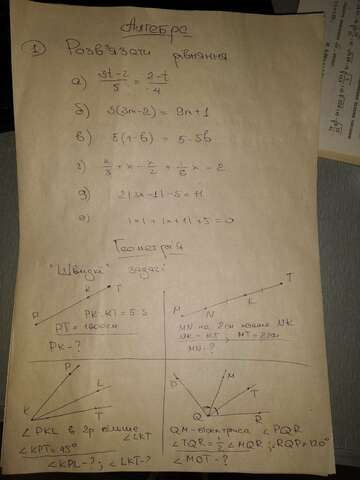 Алгебра
1 Розв'язати рівняння
а) (3t-2)/5 = (2-t)/4
б) 3(3n-2) = 9n+1
в) 5(1-b) = 5-5b
г) x/3 + x - x/2 + 1/6 x - 2
д) 2|3x-1|-5=11
е) |x|+|x+1|+5=0
Геометрія
"Швидкі" задачі
P K T
PK:KT=5:3
PT=1800см
PK-?
M N L T
MN на 2см менше NK
MT=22см
MN-?
P
K L
T
∠PKL в 2р більше
∠LKT
∠KPT=45°
∠KPL-?; ∠LKT-?
P M
T
Q R
QM-бісектриса ∠PQR
∠TQR=1/2∠MQR; ∠RQP=120°
∠MQT-?